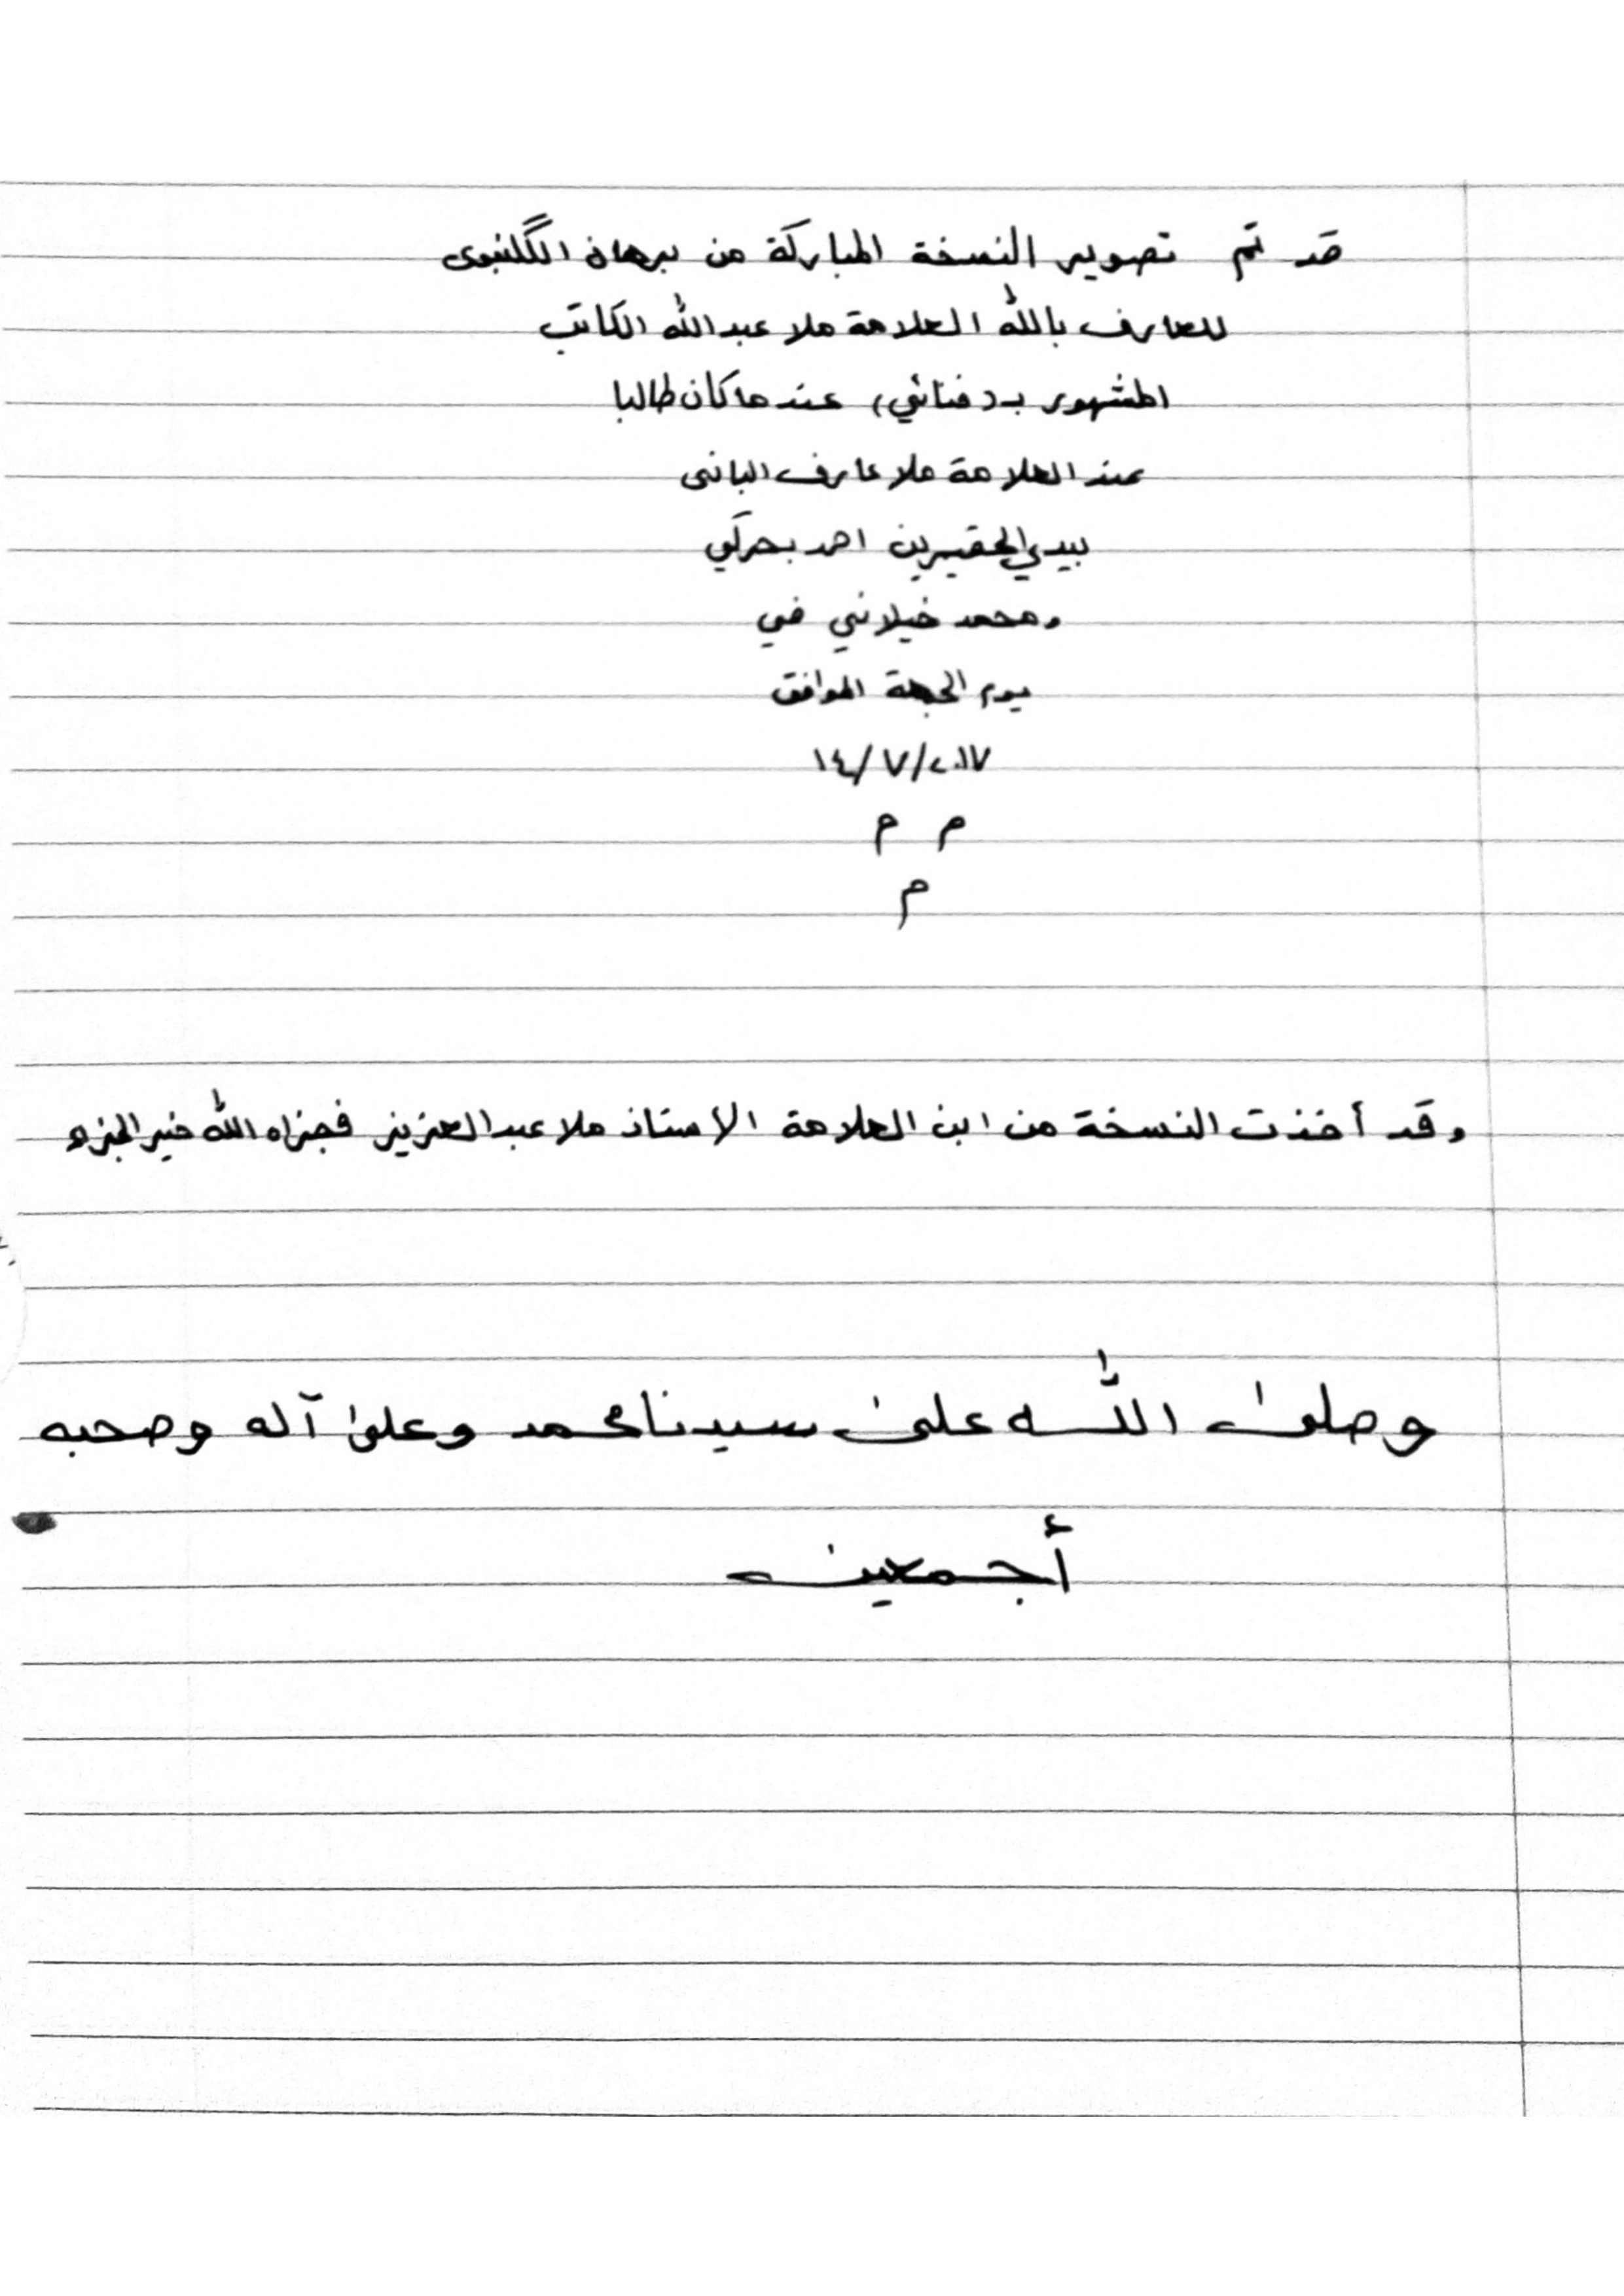 قد تم تصوير النسخة المباركة من برهان الگلنبوى
للعارف بالله العلامة ملا عبدالله الكاتب
المشهور بـ(فنائي) عندما كان طالبا
عند العلامة ملا عارف البانى
بيدي الحقيرين احمد بحركي
ومحمد خيلاني في
يوم الجمعة الموافق
١٤/٧/٢٠١٧
م م
م
وقد أخذت النسخة من ابن العلامة الاستاذ ملا عبدالعزيز فجزاه الله خير الجزاء
وصلى الله على سيدنا محمد وعلى آله وصحبه
أجمعين